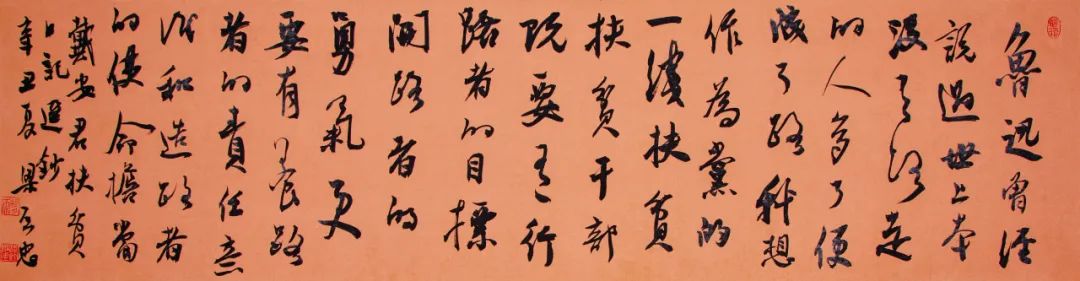 魯迅曾經
說過世上本
没有路走
的人多了便
成了路我想
作為黨的
一綫扶貧
扶貧干部
既要有行
路者的目標
開路者的
勇氣更
要有養路
者的責任意
識和造路者
的使命擔當
戴安君扶貧
日記選鈔
辛丑夏